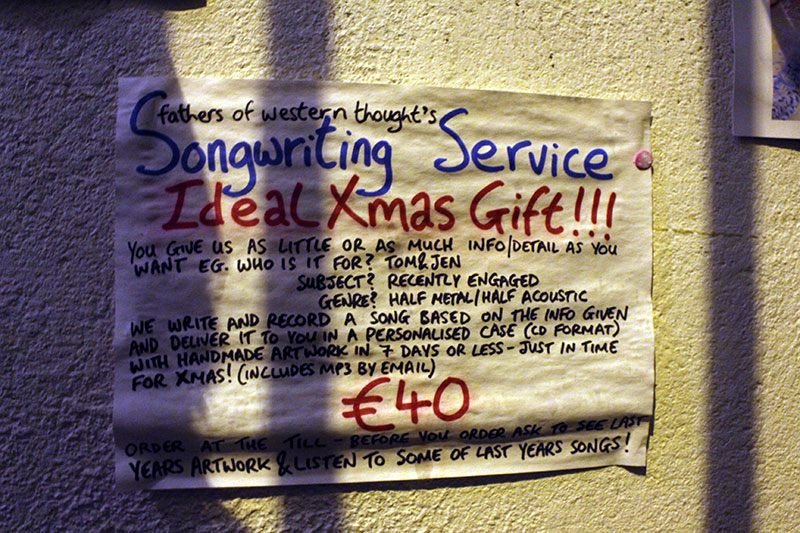 fathers of western thought's
Songwriting Service
Ideal Xmas Gift!!!
YOU GIVE US AS LITTLE OR AS MUCH INFO/DETAIL AS YOU
WANT EG. WHO IS IT FOR? TOM & JEN
SUBJECT? RECENTLY ENGAGED
GENRE? HALF METAL/HALF ACOUSTIC
WE WRITE AND RECORD A SONG BASED ON THE INFO GIVEN
AND DELIVER IT TO YOU IN A PERSONALISED CASE (CD FORMAT)
WITH HANDMADE ARTWORK IN 7 DAYS OR LESS - JUST IN TIME
FOR XMAS! (INCLUDES MP3 BY EMAIL)
€40
ORDER AT THE TILL - BEFORE YOU ORDER ASK TO SEE LAST
YEARS ARTWORK & LISTEN TO SOME OF LAST YEARS SONGS!